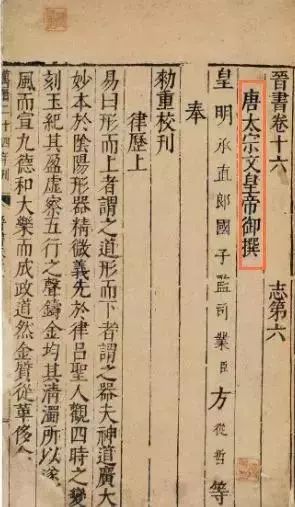 晉書卷十六　志第六
唐太宗文皇帝御撰
皇明承直郎國子監司業臣方從哲等
奉
勑重校刊
律歷上
易曰形而上者謂之道形而下者謂之器夫神道廣大
妙本於陰陽形器精微義先於律呂聖人觀四時之變
刻玉紀其盈虛察五行之聲鑄金均其清濁所以遂
風而宣九德和大樂而成政道然金質從革侈